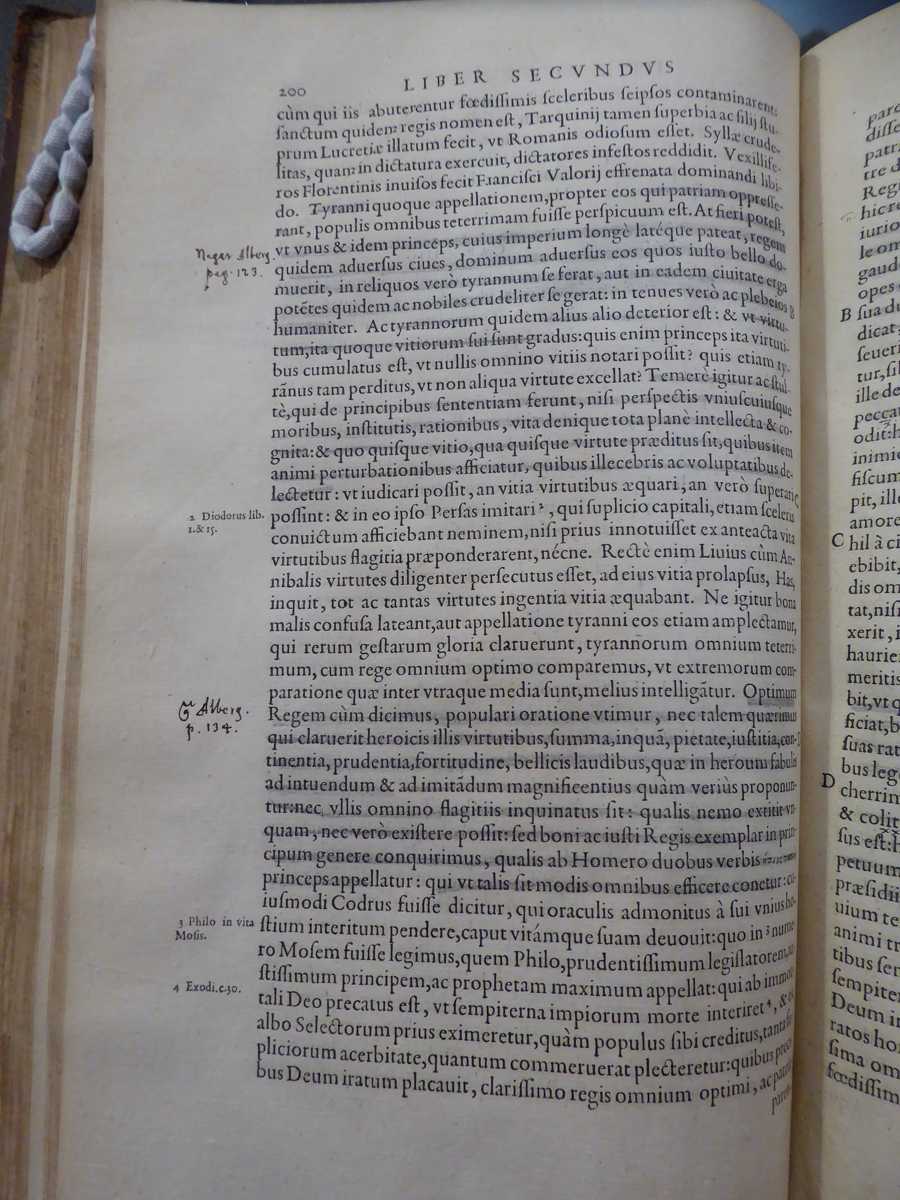 200
LIBER SECVNDVS
cùm qui iis abuterentur fœdiſſimis ſceleribus ſeipſos contaminarent:
ſanctum quidem regis nomen eſt, Tarquinij tamen ſuperbia ac filij ſtu-
prum Lucretiæ illatum fecit, vt Romanis odioſum eſſet. Syllæ crude-
litas, quam in dictatura exercuit, dictatores infeſtos reddidit. Vexillife-
ros Florentinis inuiſos fecit Franciſci Valorij effrenata dominandi libi-
do. Tyranni quoque appellationem, propter eos qui patriam oppreſſe-
rant, populis omnibus teterrimam fuiſſe perſpicuum eſt. At fieri poteſt,
vt vnus & idem princeps, cuius imperium longè latéque pateat, regem
quidem aduerſus ciues, dominum aduerſus eos quos iuſto bello do-
muerit, in reliquos verò tyrannum ſe ferat, aut in eadem ciuitate erga
potẽtes quidem ac nobiles crudeliter ſe gerat: in tenues verò ac plebeios
humaniter. Ac tyrannorum quidem alius alio deterior eſt: & vt virtu-
tum, ita quoque vitiorum ſui ſunt gradus: quis enim princeps ita virtuti-
bus cumulatus eſt, vt nullis omnino vitiis notari poſſit? quis etiam ty-
rãnus tam perditus, vt non aliqua virtute excellat? Temerè igitur ac ſtul-
tè, qui de principibus ſententiam ferunt, niſi perſpectis vniuſcuiuſque
moribus, inſtitutis, rationibus, vita denique tota planè intellecta & co-
gnita: & quo quiſque vitio, qua quiſque virtute præditus ſit, quibus item
animi perturbationibus afficiatur, quibus illecebris ac voluptatibus de-
lectetur: vt iudicari poſſit, an vitia virtutibus æquari, an verò ſuperari
poſſint: & in eo ipſo Perſas imitari ², qui ſuplicio capitali, etiam ſceleris
conuictum afficiebant neminem, niſi prius innotuiſſet ex anteacta vita
virtutibus flagitia præponderarent, nécne. Rectè enim Liuius cùm An-
nibalis virtutes diligenter perſecutus eſſet, ad eius vitia prolapſus, Has,
inquit, tot ac tantas virtutes ingentia vitia æquabant. Ne igitur bona
malis confuſa lateant, aut appellatione tyranni eos etiam amplectamur,
qui rerum geſtarum gloria claruerunt, tyrannorum omnium teterri-
mum, cum rege omnium optimo comparemus, vt extremorum com-
paratione quæ inter vtraque media ſunt, melius intelligãtur. Optimum
Regem cùm dicimus, populari oratione vtimur, nec talem quærimus
qui claruerit heroicis illis virtutibus, ſumma, inquã, pietate, iuſtitia, con-
tinentia, prudentia, fortitudine, bellicis laudibus, quæ in heroum fabulis
ad intuendum & ad imitãdum magnificentius quàm veriùs proponun-
tur: nec vllis omnino flagitiis inquinatus ſit: qualis nemo extitit vn-
quam, nec verò exiſtere poſſit: ſed boni ac iuſti Regis exemplar in prin-
cipum genere conquirimus, qualis ab Homero duobus verbis
princeps appellatur: qui vt talis ſit modis omnibus efficere conetur: cu-
iuſmodi Codrus fuiſſe dicitur, qui oraculis admonitus à ſui vnius ho-
ſtium interitum pendere, caput vitámque ſuam deuouit: quo in ³ nume
ro Moſem fuiſſe legimus, quem Philo, prudentiſſimum legiſlatorem, iu
ſtiſſimum principem, ac prophetam maximum appellat: qui ab immor
tali Deo precatus eſt, vt ſempiterna impiorum morte interiret ⁴, & ex
albo Selectorum prius eximeretur, quàm populus ſibi creditus, tanta ſup
pliciorum acerbitate, quantum commeruerat plecteretur: quibus preci
bus Deum iratum placauit, clariſſimo regis omnium optimi, ac patriæ
Negat Alberg.
pag. 123.
2 Diodorus lib.
1. & 15.
Alberg.
p. 134.
3 Philo in vita
Moſis.
4 Exodi. c. 30.
B
C
D